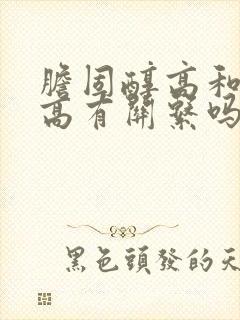 膽固醇高和
高有關繫嗎
黑色頭發的天